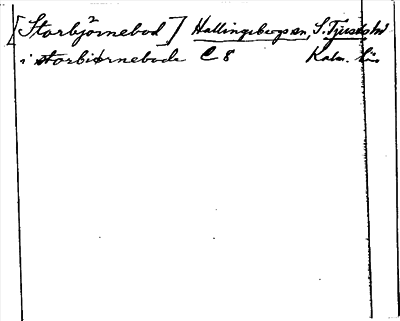 [Storbjörnebod] Hallingebergs sn, S. Tjusts hd
i storbiörnebode C 8 Kalm. län